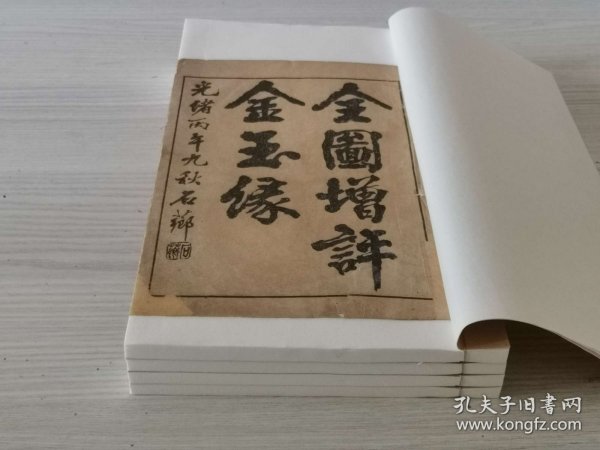 全圖增評
金玉缘
光绪丙午九秋石薌
孔夫子旧书网
www.kongfz.com